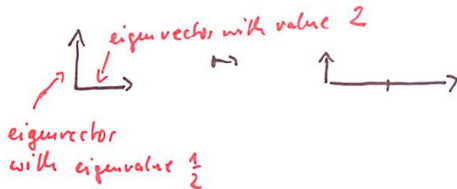 eigenvector with value 2
eigenvector
with eigenvalue 1/2